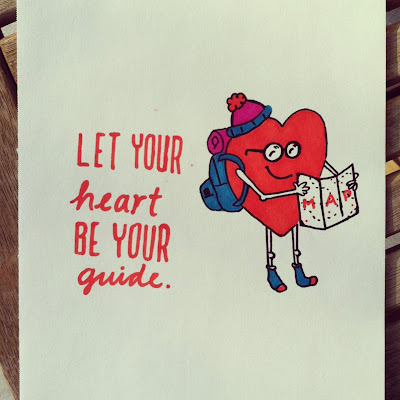 LET YOUR
heart
BE YOUR
guide.
MAP